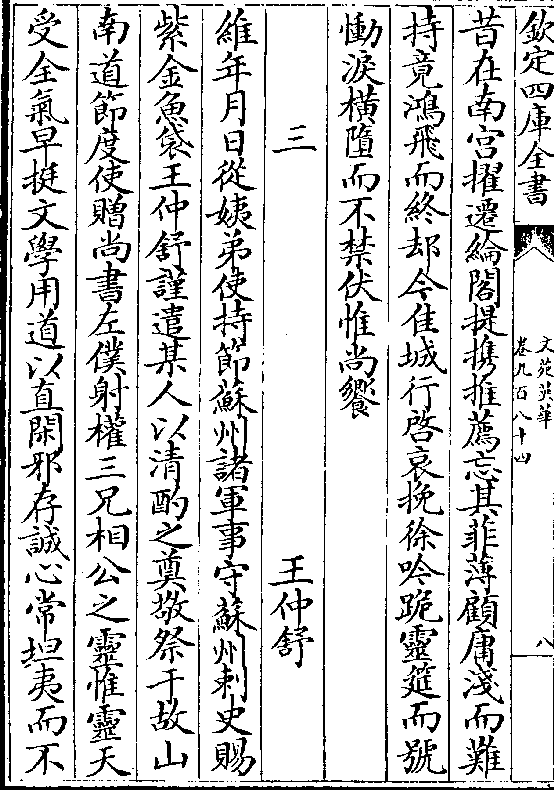 欽定四庫全書
文苑英華
卷九百八十四
八
昔在南宫擢遷綸閣提携推薦忘其菲薄顧庸淺而難
持竟鴻飛而終却今佳城行啓哀挽徐吟跪靈筵而號
慟淚橫墮而不禁伏惟尚饗
三 王仲舒
維年月日從姨弟使持節蘇州諸軍事守蘇州刺史賜
紫金魚袋王仲舒謹遣某人以清酌之奠敬祭于故山
南道節度使贈尚書左僕射權三兄相公之靈惟靈天
受全氣早挺文學用道以直閑邪存誠心常坦夷而不